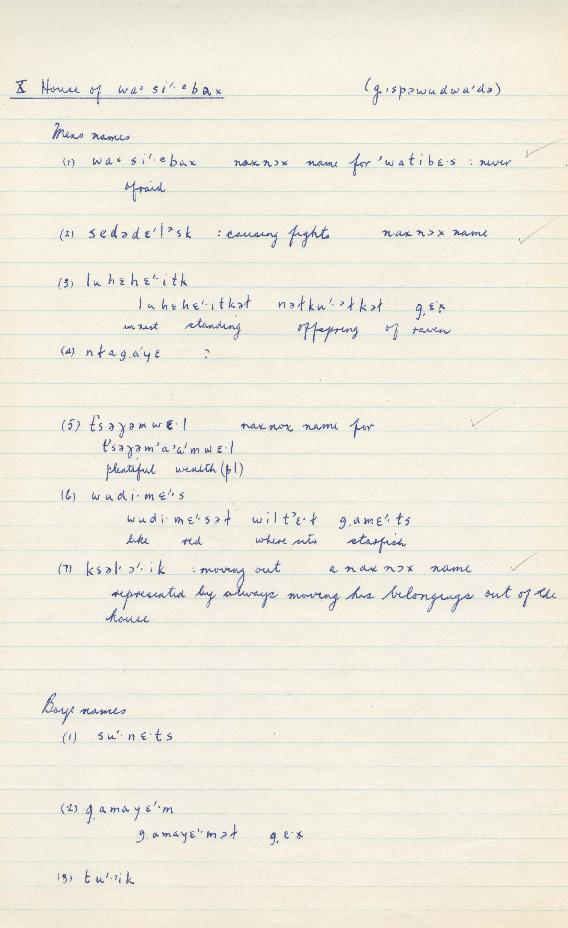 X House of waᵋ si'·ᵋbax (g̣ispəwudwa'də)
Mens names
(1) waᵋ si'·ᵋbax naxnɔx name for 'watibɛ·s : never
afraid
(2) sedədɛ'lᵊsk : causing fights naxnɔx name
(3) luhɛhɛ'·itk
luhɛhɛ'·itkət nətku'·ətkət g̣ɛx
in nest standing offspring of raven
(4) nɬag̣a'yɛ ?
(5) t'səɣəmwɛ·l naxnox name for
t'səɣəm'a'a'mwɛ·l
plentiful wealth (pl)
(6) wudi·mɛ'·s
wudi·mɛ'·sət wilt'ɛ·t g̣amɛ'·ts
like red where sits starfish
(7) ksəl'ɔ'·ik : moving out a naxnɔx name
represented by always moving his belongings out of the
house
Boys names
(1) su'·nɛ·ts
(2) g̣amayɛ'·m
g̣amayɛ'·mət g̣ɛ·x
(3) tu'·ik